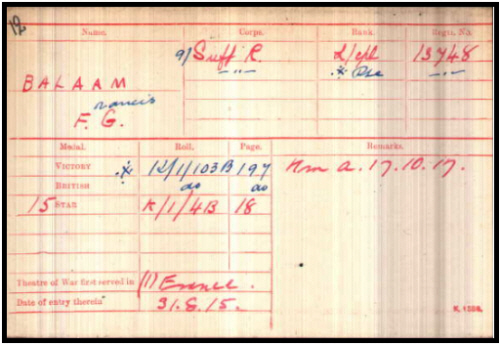 12
Name. Corps. Rank. Regtl. No.
9/Suff R. L/cpl 13748
—„— * Pte —„—
BALAAM
rancis
F. G.
Medal. Roll. Page. Remarks.
VICTORY * K/1/103B 197 Km a. 17.10.17.
BRITISH do do
15 STAR K/1/4B 18
Theatre of War first served in (1) France.
Date of entry therein 31.8.15.
K. 1380.